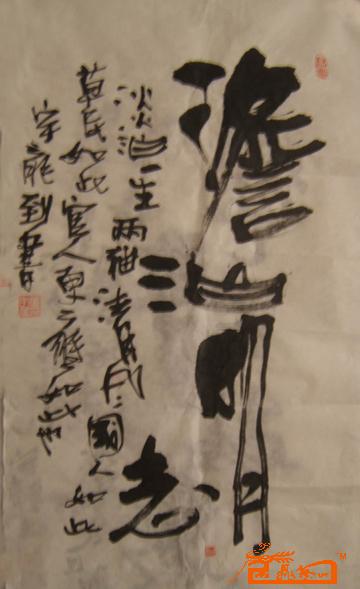 澹泊明志
淡泊一生 两袖清风 國人如此
草民如此 官人更應如此也
到書